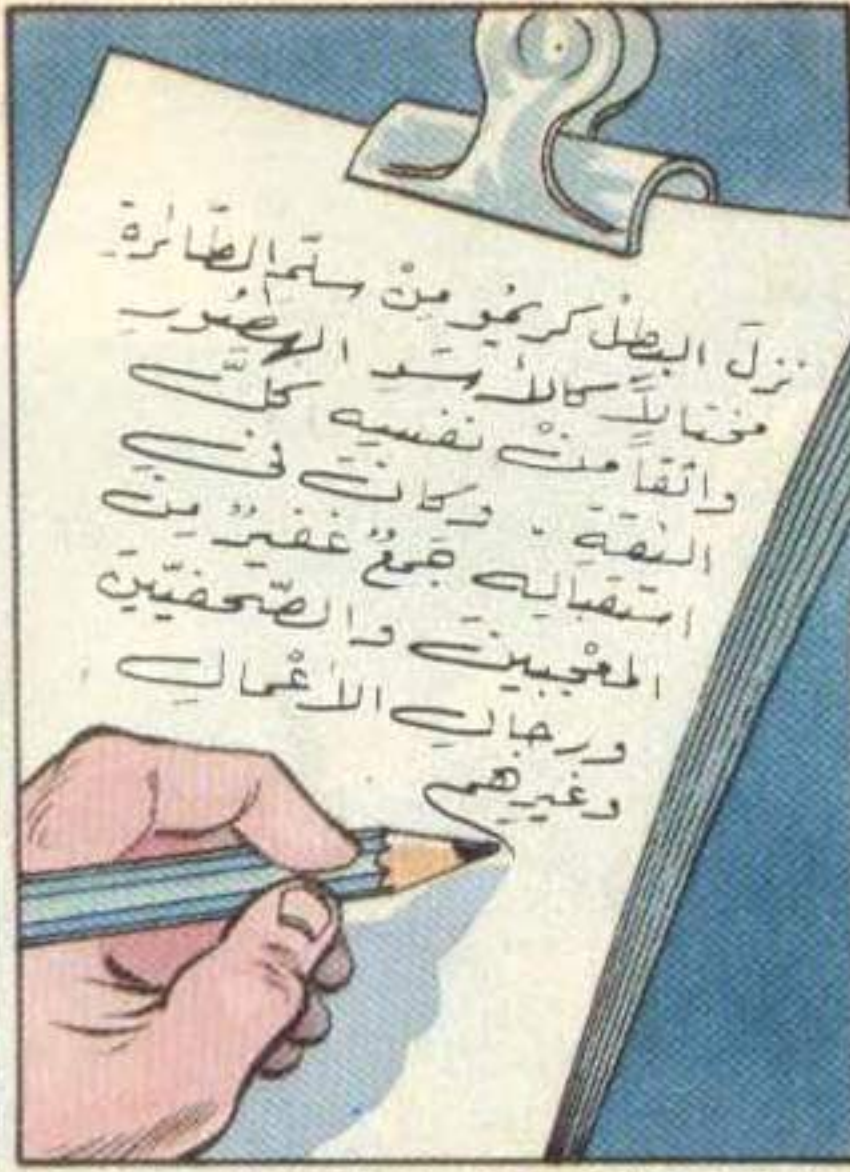 نزلَ البطلُ كريمُو مِنْ سلّم الطّائرةِ
مختالاً كالأسَدِ الهصُورِ
واثقاً منْ نفسِهِ كلَّ
الثقةِ . وكانَ في
استقبالِهِ جَمعٌ غفيرٌ مِنَ
المعْجبينَ والصّحفيّينَ
ورجالِ الأعْمالِ
وغيرِهم